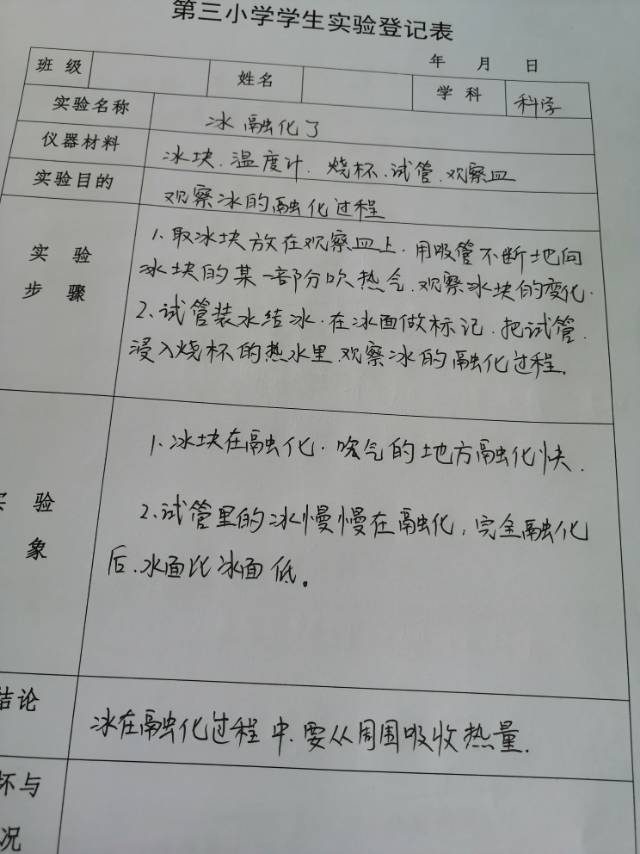 第三小学学生实验登记表
年 月 日
班级 姓名 学科 科学
实验名称 冰融化了
仪器材料 冰块、温度计、烧杯、试管、观察皿
实验目的 观察冰的融化过程
实验步骤
1、取冰块放在观察皿上、用吸管不断地向
冰块的某一部分吹热气、观察冰块的变化.
2、试管装水结冰、在冰面做标记、把试管
浸入烧杯的热水里、观察冰的融化过程.
验象
1、冰块在融化、吹气的地方融化快.
2、试管里的冰慢慢在融化,完全融化
后、水面比冰面低。
结论 冰在融化过程中、要从周围吸收热量.
坏与
况